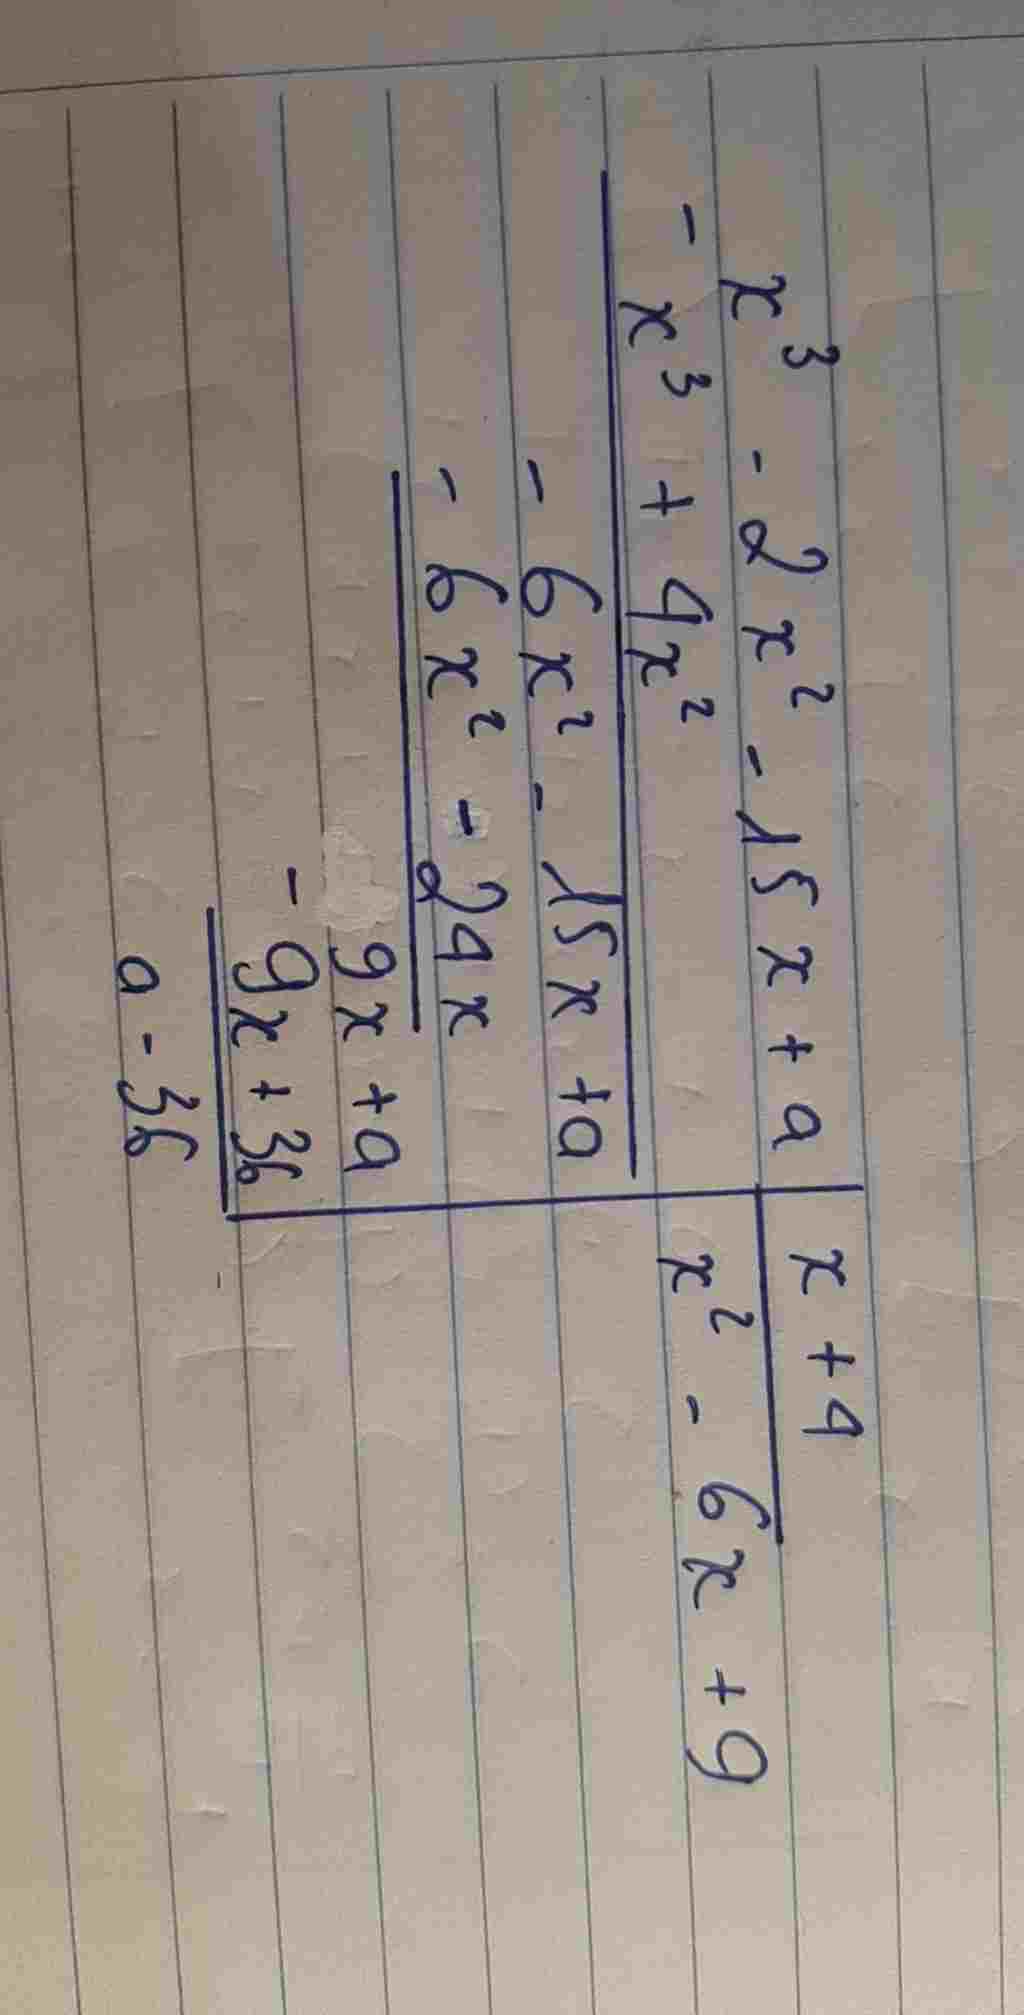 x³ - 2x² - 15x + a | x + 4
- x³ + 4x² | x² - 6x + 9
- 6x² - 15x + a
- 6x² - 24x
9x + a
- 9x + 36
a - 36